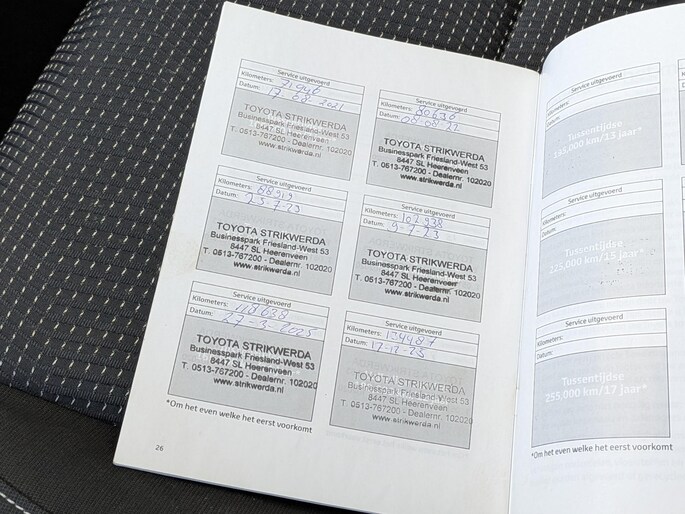 Service uitgevoerd
Kilometers: 71946
Datum: 17-08-2021
TOYOTA STRIKWERDA
Businesspark Friesland-West 53
8447 SL Heerenveen
T. 0513-767200 - Dealernr. 102020
www.strikwerda.nl
Service uitgevoerd
Kilometers: 80636
Datum: 08-08-22
TOYOTA STRIKWERDA
Businesspark Friesland-West 53
8447 SL Heerenveen
T. 0513-767200 - Dealernr. 102020
www.strikwerda.nl
Service uitgevoerd
Kilometers:
Datum: 25-7-23
TOYOTA STRIKWERDA
Businesspark Friesland-West 53
8447 SL Heerenveen
T. 0513-767200 - Dealernr. 102020
www.strikwerda.nl
Service uitgevoerd
Kilometers: 102938
Datum:
TOYOTA STRIKWERDA
Businesspark Friesland-West 53
8447 SL Heerenveen
T. 0513-767200 - Dealernr. 102020
www.strikwerda.nl
Service uitgevoerd
Kilometers: 118638
Datum: 27-3-2025
TOYOTA STRIKWERDA
Businesspark Friesland-West 53
8447 SL Heerenveen
T. 0513-767200 - Dealernr. 102020
www.strikwerda.nl
Service uitgevoerd
Kilometers: 134487
Datum: 17-12-25
TOYOTA STRIKWERDA
Businesspark Friesland-West 53
8447 SL Heerenveen
T. 0513-767200 - Dealernr. 102020
www.strikwerda.nl
*Om het even welke het eerst voorkomt
26
Service uitgevoerd
Kilometers:
Datum:
Tussentijdse
195,000 km/13 jaar*
Service uitgevoerd
Kilometers:
Datum:
Tussentijdse
225,000 km/15 jaar*
Service uitgevoerd
Kilometers:
Datum:
Tussentijdse
255,000 km/17 jaar*
*Om het even welke het eerst voorkomt